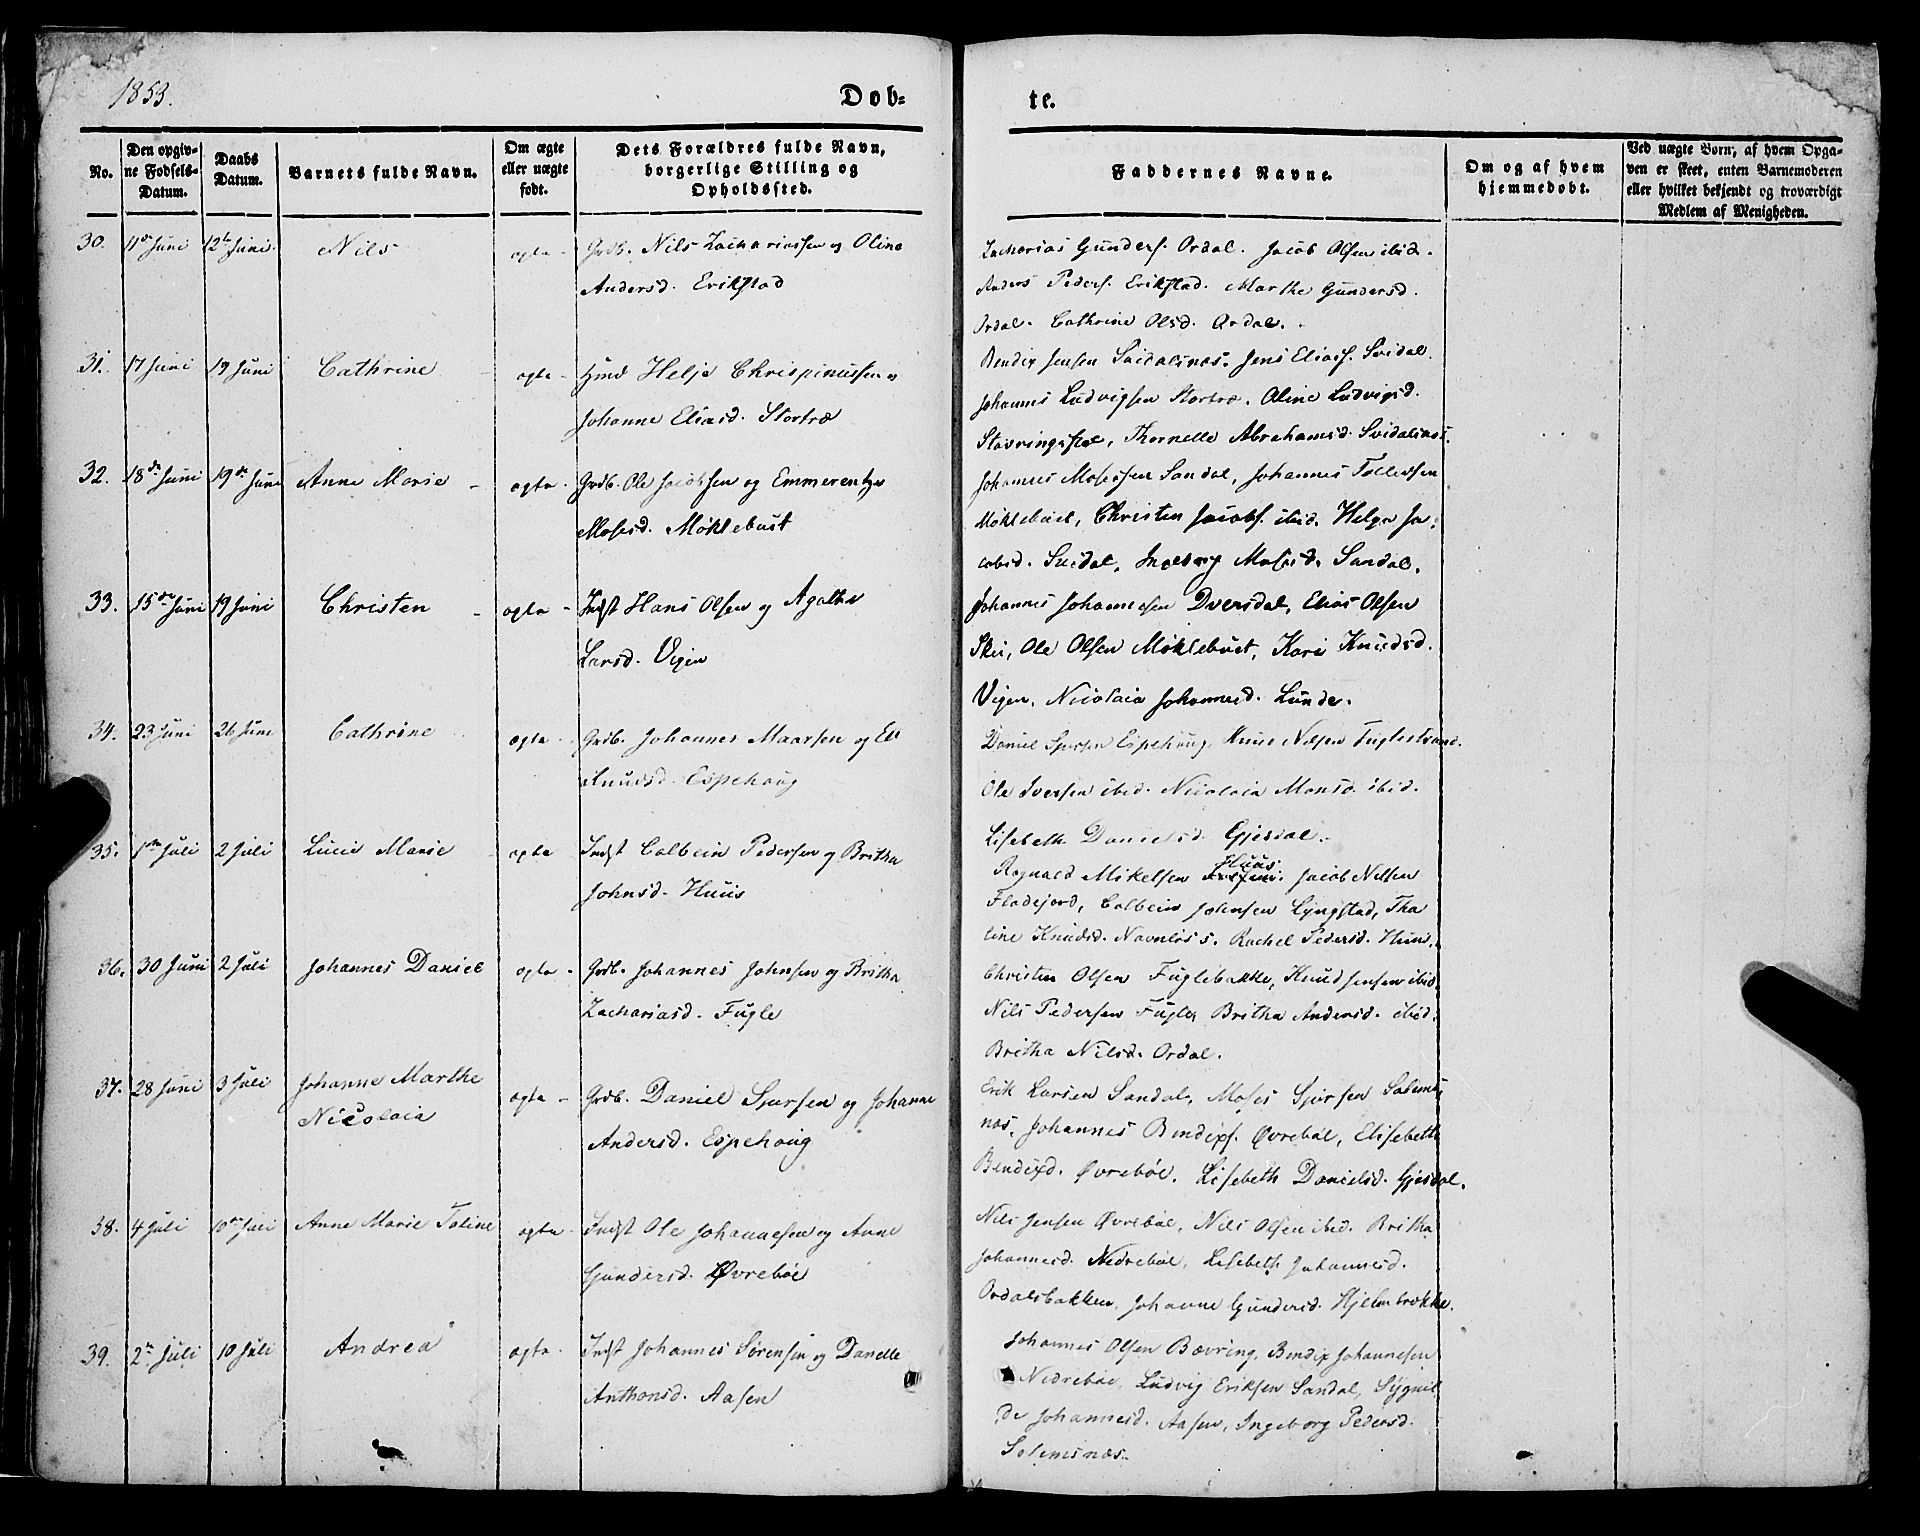 1853.
Døb=
te.
No.
Den opgiv-
ne Fødsels-
Datum.
Daabs
Datum.
Barnets fulde Navn.
Om ægte
eller uægte
født.
Dets Forældres fulde Navn,
borgerlige Stilling og
Opholdssted.
Faddernes Navne.
Om og af hvem
hjemmedøbt.
Ved uægte Børn, af hvem Opga-
ven er skeet, enten Barnemoderen
eller hvilket bekjendt og troværdigt
Medlem af Menigheden.
30. 11te Juni 12te Juni Nils ægte Grdb. Nils Zachariassen og Oline
Andersd. Erikstad
Zacharias Gunders. Ordal. Jacob Olsen ibid.
Anders Peders. Erikstad. Marthe Gundersd.
Ordal. Cathrine Olsd. Ordal.
31. 17 Juni 19 Juni Cathrine ægte - Helje Chrispinussen og
Johanne Eliasd. Stortræ
Bendix Jensen Svidalsnæs. Jens Elias. Svidal.
Johannes Ludvigsen Stortræ. Oline Ludvigsd.
Thornelle Abrahamsd. Svidalsnæs.
32. 18de Juni 19de Juni Anne Marie - ægte - Grdb. Ole Jacobsen og Emmerentze
Mosesd. Møklebust
Johannes Mosessen Sandal, Johannes Tollefsen
Møklebust, Christen Jacobs. ibid. Helga Ja-
cobsd. Svidal, Ingeborg Mosesd. Sandal.
33. 15de Juni 19 Juni Christen - ægte - Indst Hans Olsen og Agathe
Larsd. Vigen
Johannes Johannessen Dversdal, Elias Olsen
Skei, Ole Olsen Møklebust, Kari Knudsd.
Vigen, Nicolaia Johannesd. Lunde.
34. 23 Juni 26 Juni Cathrine ægte - Grdb. Johannes Maarsen og Eli
Knudsd. Espehoug
Daniel Sjursen Espehoug, Knud Nilsen Fuglestrand.
Ole Iversen ibid. Nicolaia Monsd. ibid.
Lisebeth Danielsd. Gjesdal.
35. 1ste Juli 2 Juli Lucie Marie - ægte Indst Colbein Pedersen og Britha
Johnsd. Huus
Huus
Ragnald Mikelsen Jacob Nilsen
Fladejord, Colbein Johnsen Lyngstad, Tha
line Knudsd. Navnløs s. Rachel Pedersd. Huus.
36. 30 Juni 2 Juli Johannes Daniel ægte - Grdb. Johannes Johnsen og Britha
Zachariasd. Fugle
Christen Olsen Fuglebakke, Knud Jensen ibid.
Nils Pedersen Fugle, Britha Andersd. ibid.
Britha Nilsd. Ordal.
37. 28 Juni 3 Juli Johanne Marthe
Nicolaia
ægte - Grdb. Daniel Sjursen og Johanne
Andersd. Espehoug
Erik Larsen Sandal, Moses Sjursen Solems
næs, Johannes Bendixs. Øvrebøe, Elisebeth
Bendixd. Øvrebøe. Lisebeth Danielsd. Gjesdal.
38. 4 Juli 10de Juli Anne Marie Taline ægte - Indst Ole Johannessen og Anne
Gundersd. Øvrebøe
Nils Jensen Øvrebøe, Nils Olsen ibid. Britha
Johannesd. Nedrebøe, Lisebeth Johannesd.
Ordalsbakken, Johanne Gundersd. Hjelmbrække.
39. 2de Juli 10 Juli Andrea ægte - Indst Johannes Sørensen og Danelle
Anthonsd. Aasen
Johannes Olsen Bævring, Bendix Johannesen
Nedrebøe, Ludvig Eriksen Sandal, Sygnil
de Johannesd. Aasen, Ingeborg Pedersd.
Solemsnæs.